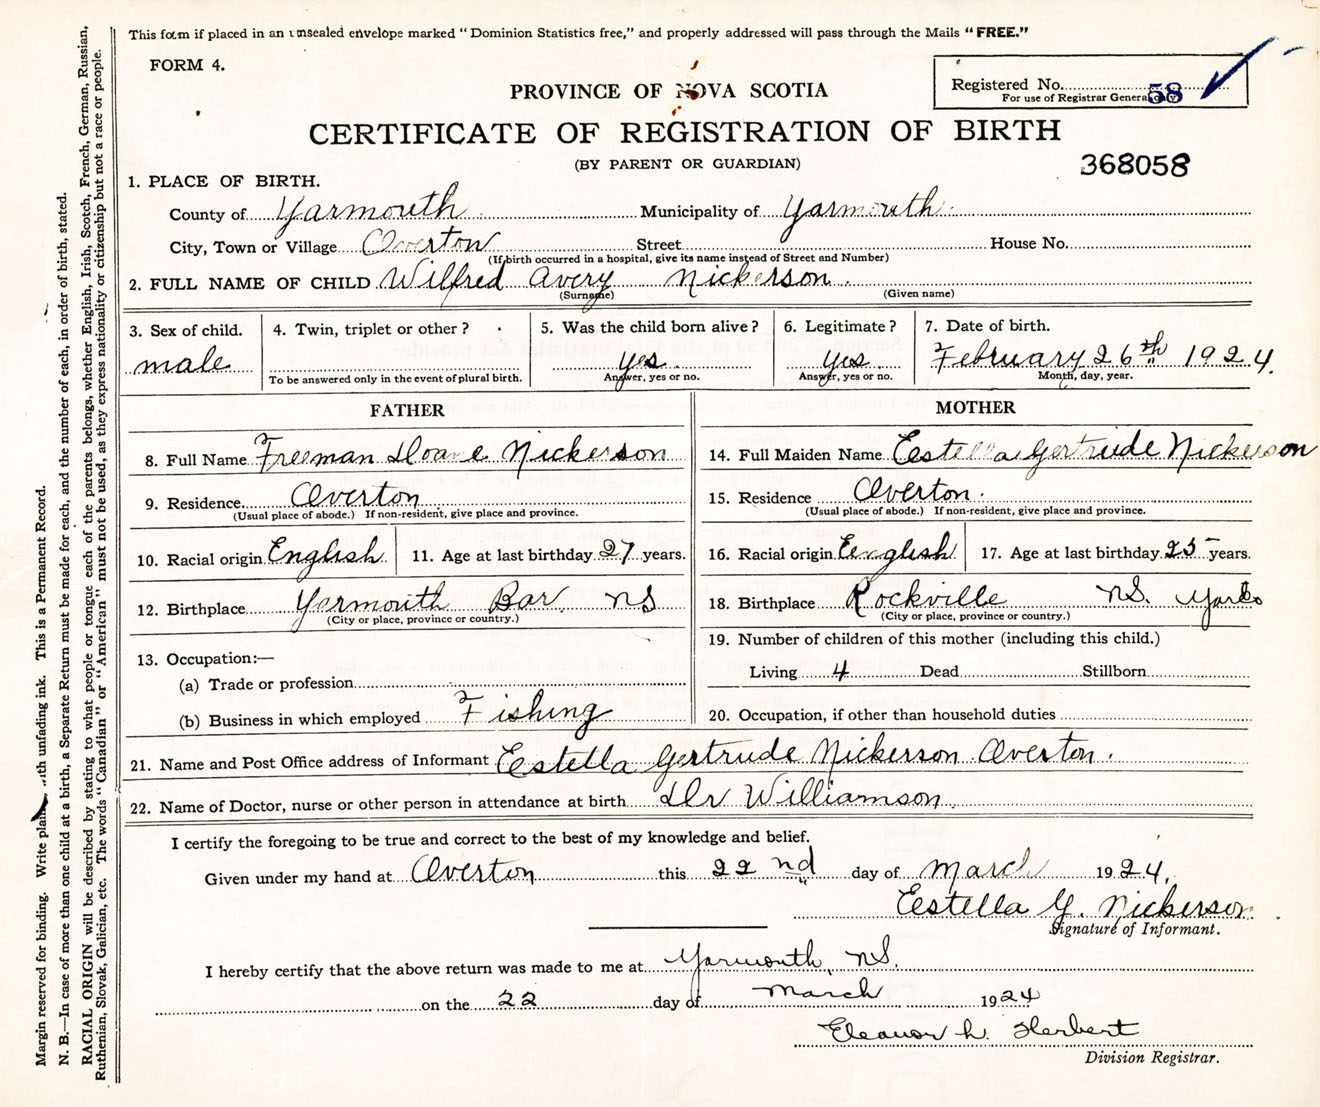 This form if placed in an unsealed envelope marked "Dominion Statistics free," and properly addressed will pass through the Mails "FREE."
FORM 4.
PROVINCE OF NOVA SCOTIA
Registered No. 58
For use of Registrar General only
CERTIFICATE OF REGISTRATION OF BIRTH
(BY PARENT OR GUARDIAN)
368058
1. PLACE OF BIRTH.
County of Yarmouth Municipality of Yarmouth
City, Town or Village Overton Street House No.
(If birth occurred in a hospital, give its name instead of Street and Number)
2. FULL NAME OF CHILD Wilfred Avery Nickerson
(Surname) (Given name)
3. Sex of child. 4. Twin, triplet or other? 5. Was the child born alive? 6. Legitimate? 7. Date of birth.
male yes yes February 26th 1924.
To be answered only in the event of plural birth. Answer, yes or no. Answer, yes or no. Month, day, year.
FATHER
8. Full Name Freeman Doane Nickerson
9. Residence Overton
(Usual place of abode.) If non-resident, give place and province.
10. Racial origin English 11. Age at last birthday 27 years.
12. Birthplace Yermouth Bar NS
(City or place, province or country.)
13. Occupation:—
(a) Trade or profession
(b) Business in which employed Fishing
MOTHER
14. Full Maiden Name Eestella Gertrude Nickerson
15. Residence Overton.
(Usual place of abode.) If non-resident, give place and province.
16. Racial origin Eenglish 17. Age at last birthday 25 years.
18. Birthplace Rockville NS. Yarko
(City or place, province or country.)
19. Number of children of this mother (including this child.)
Living 4 Dead Stillborn
20. Occupation, if other than household duties
21. Name and Post Office address of Informant Eestella Gertrude Nickerson Overton.
22. Name of Doctor, nurse or other person in attendance at birth Dr Williamson
I certify the foregoing to be true and correct to the best of my knowledge and belief.
Given under my hand at Overton this 22nd day of March 1924.
Eestella G. Nickerson
Signature of Informant.
I hereby certify that the above return was made to me at Yarmouth, NS.
on the 22 day of March 1924
Eleanor L. Herbert
Division Registrar.
Margin reserved for binding. Write plainly with unfading ink. This is a Permanent Record.
N. B.—In case of more than one child at a birth, a Separate Return must be made for each, and the number of each, in order of birth, stated.
RACIAL ORIGIN will be described by stating to what people or tongue each of the parents belongs, whether English, Irish, Scotch, French, German, Russian,
Ruthenian, Slovak, Galician, etc. The words "Canadian" or "American" must not be used, as they express nationality or citizenship but not a race or people.